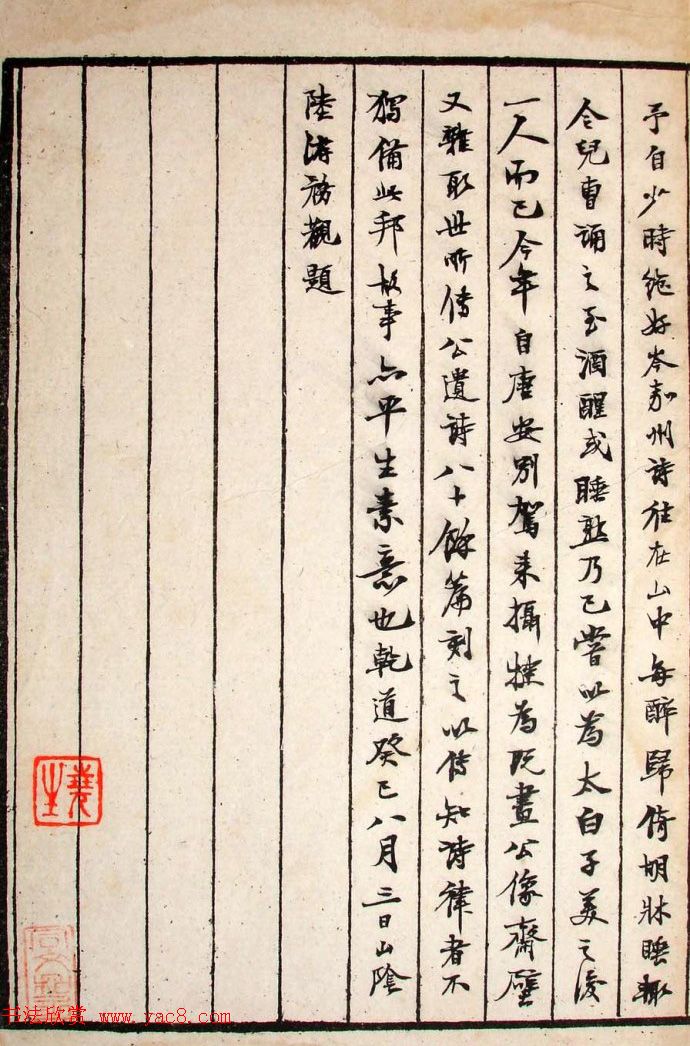 予自少時絶好岑嘉州詩往在山中每醉歸倚胡牀睡輒
令兒曹誦之至酒醒或睡熟乃已嘗以為太白子美之後
一人而已今年自唐安別駕来攝犍為既畫公像齋壁
又雜取世所傳公遺詩八十餘篇刻之以傳知詩律者不
獨備此邦故事亦平生素意也乾道癸巳八月三日山陰
陸游務觀題
書法欣赏 www.yac8.com